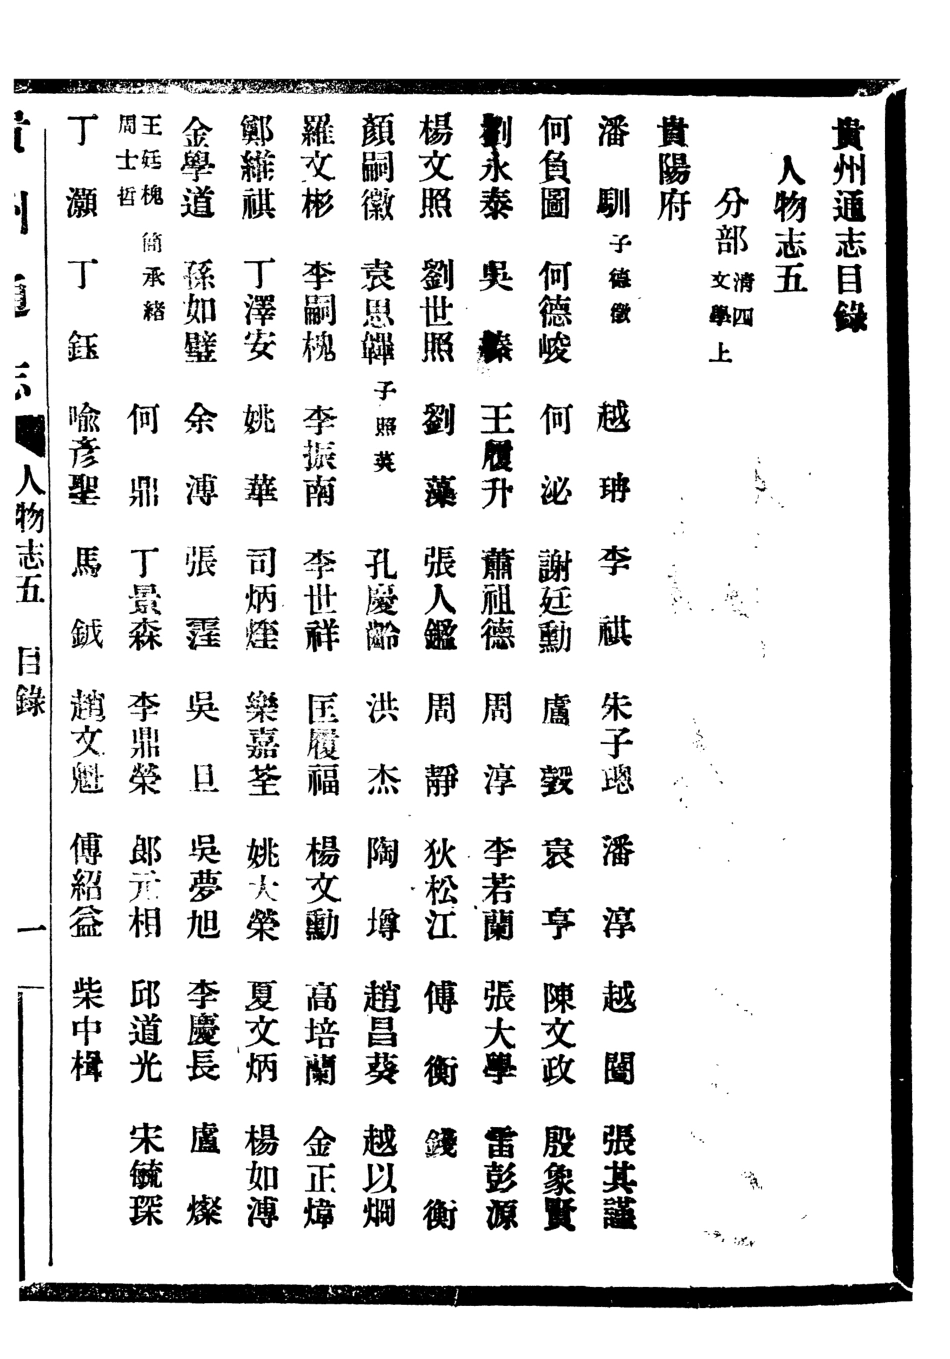 貴州通志目錄
人物志五
分部清四文學上
貴陽府
潘馴子德徵 越珃 李祺 朱子璁 潘淳 越閣 張其謹
何負圖 何德峻 何泌 謝廷勳 盧毅 袁亨 陳文政 殷象賢
劉永泰 吳榛 王履升 蕭祖德 周淳 李若蘭 張大學 雷彭源
楊文照 劉世照 劉藻 張人鑑 周靜 狄松江 傅衡 錢衡
顏嗣徽 袁思韠子照英 孔慶齡 洪杰 陶墫 趙昌葵 越以烱
羅文彬 李嗣槐 李振南 李世祥 匡履福 楊文勳 高培蘭 金正煒
鄭維祺 丁澤安 姚華 司炳煃 樂嘉荃 姚大榮 夏文炳 楊如溥
金學道 孫如璧 余溥 張霔 吳旦 吳夢旭 李慶長 盧燦
王廷槐 周士哲 簡承緒 何鼎 丁景森 李鼎榮 郎元相 邱道光 宋毓琛
丁灝 丁鈺 喻彥聖 馬鉞 趙文魁 傅紹益 柴中楫
貴州通志 人物志五 目錄 一